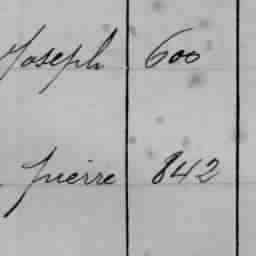 Joseph 600
pierre 842